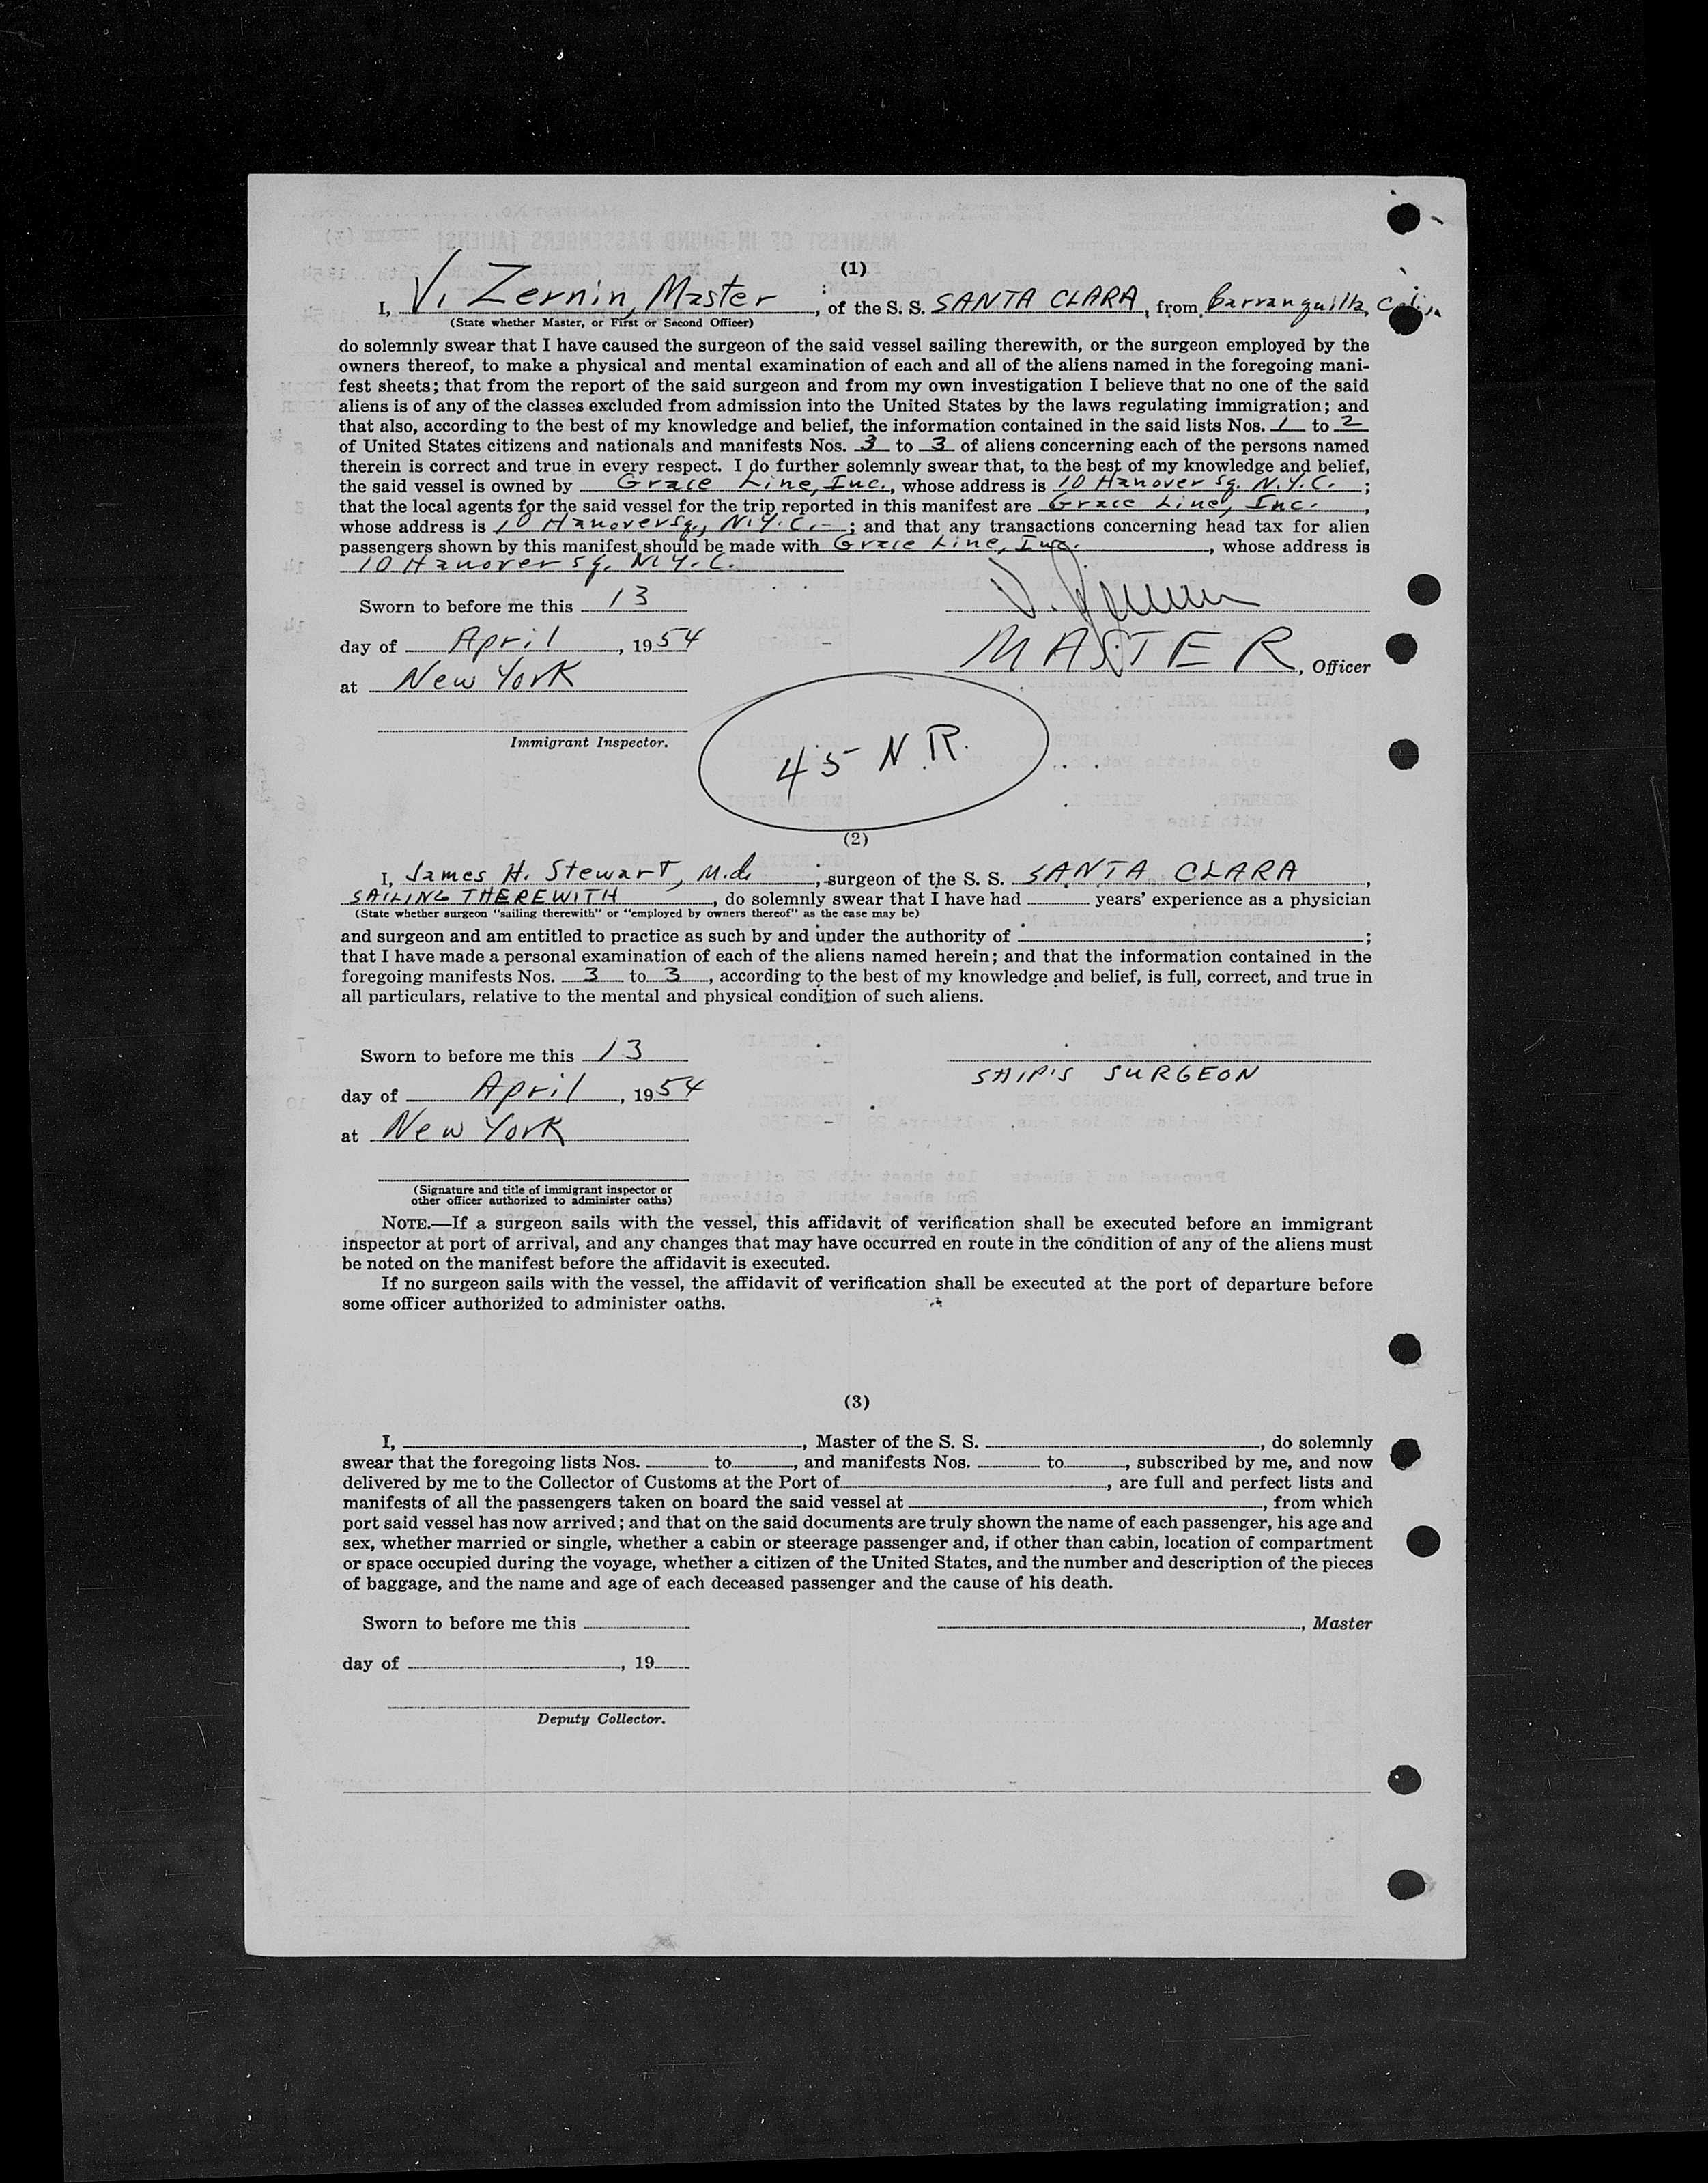 (1)
I, V. Zernin, Master, of the S. S. SANTA CLARA, from Barranquilla,
(State whether Master, or First or Second Officer)
do solemnly swear that I have caused the surgeon of the said vessel sailing therewith, or the surgeon employed by the
owners thereof, to make a physical and mental examination of each and all of the aliens named in the foregoing mani-
fest sheets; that from the report of the said surgeon and from my own investigation I believe that no one of the said
aliens is of any of the classes excluded from admission into the United States by the laws regulating immigration; and
that also, according to the best of my knowledge and belief, the information contained in the said lists Nos. 1 to 2
of United States citizens and nationals and manifests Nos. 3 to 3 of aliens concerning each of the persons named
therein is correct and true in every respect. I do further solemnly swear that, to the best of my knowledge and belief,
the said vessel is owned by Grace Line, Inc., whose address is 10 Hanover Sq. N.Y.C. ;
that the local agents for the said vessel for the trip reported in this manifest are Grace Line, Inc. ,
whose address is 10 Hanover Sq., N.Y.C. ; and that any transactions concerning head tax for alien
passengers shown by this manifest should be made with Grace Line, Inc. , whose address is
10 Hanover Sq. N.Y.C.
Sworn to before me this 13
day of April , 1954
MASTER , Officer
at New York
Immigrant Inspector.
45 N.R.
(2)
I, James H. Stewart, M.d. , surgeon of the S. S. SANTA CLARA ,
SAILING THEREWITH , do solemnly swear that I have had years' experience as a physician
(State whether surgeon "sailing therewith" or "employed by owners thereof" as the case may be)
and surgeon and am entitled to practice as such by and under the authority of ;
that I have made a personal examination of each of the aliens named herein; and that the information contained in the
foregoing manifests Nos. 3 to 3 , according to the best of my knowledge and belief, is full, correct, and true in
all particulars, relative to the mental and physical condition of such aliens.
Sworn to before me this 13
SHIP'S SURGEON
day of April , 1954
at New York
(Signature and title of immigrant inspector or
other officer authorized to administer oaths)
NOTE.—If a surgeon sails with the vessel, this affidavit of verification shall be executed before an immigrant
inspector at port of arrival, and any changes that may have occurred en route in the condition of any of the aliens must
be noted on the manifest before the affidavit is executed.
If no surgeon sails with the vessel, the affidavit of verification shall be executed at the port of departure before
some officer authorized to administer oaths.
(3)
I, , Master of the S. S. , do solemnly
swear that the foregoing lists Nos. to , and manifests Nos. to , subscribed by me, and now
delivered by me to the Collector of Customs at the Port of , are full and perfect lists and
manifests of all the passengers taken on board the said vessel at , from which
port said vessel has now arrived; and that on the said documents are truly shown the name of each passenger, his age and
sex, whether married or single, whether a cabin or steerage passenger and, if other than cabin, location of compartment
or space occupied during the voyage, whether a citizen of the United States, and the number and description of the pieces
of baggage, and the name and age of each deceased passenger and the cause of his death.
Sworn to before me this
, Master
day of , 19
Deputy Collector.